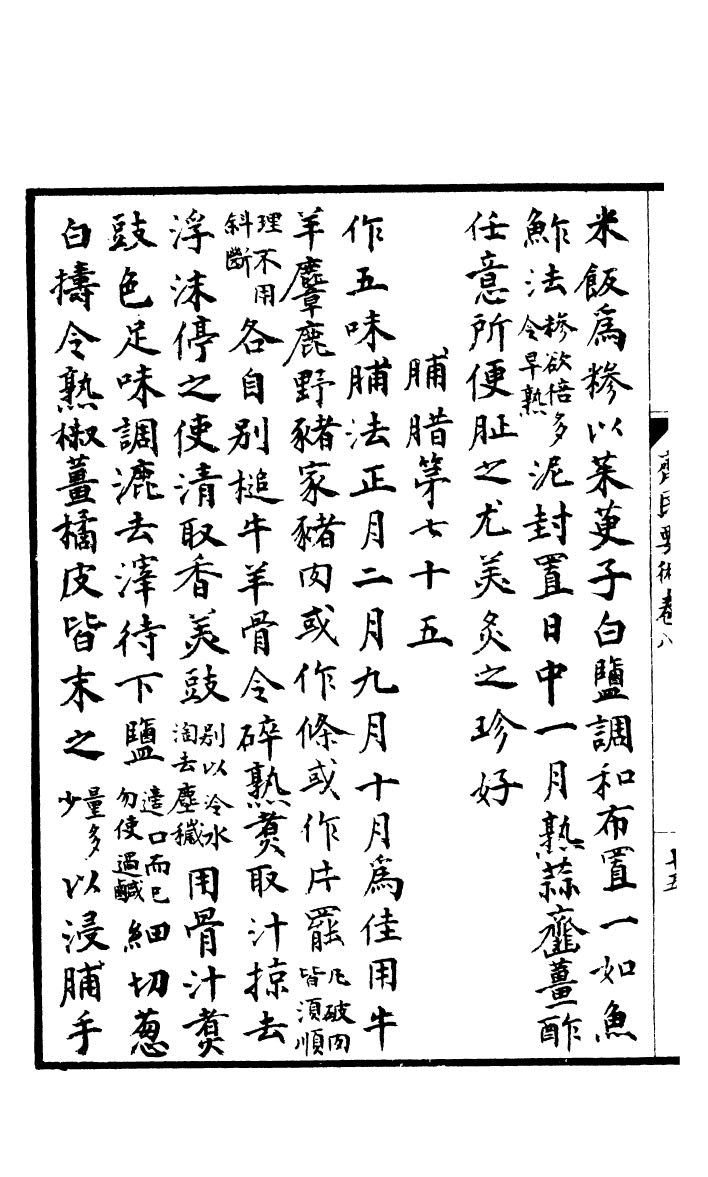 齊民要術卷八
十五
米飯爲糝以茱萸子白鹽調和布置一如魚
鮓法糝欲倍多令早熟泥封置日中一月熟蒜虀薑酢
任意所便䏑之尤美炙之珍好
脯腊第七十五
作五味脯法正月二月九月十月爲佳用牛
羊麞鹿野豬家豬肉或作條或作片罷凡破肉皆須順
理不用斜斷各自別槌牛羊骨令碎熟煑取汁掠去
浮沫停之使清取香美豉別以冷水淘去塵穢用骨汁煑
豉色足味調漉去滓待下鹽適口而已勿使過鹹細切葱
白擣令熟椒薑橘皮皆末之量多少以浸脯手